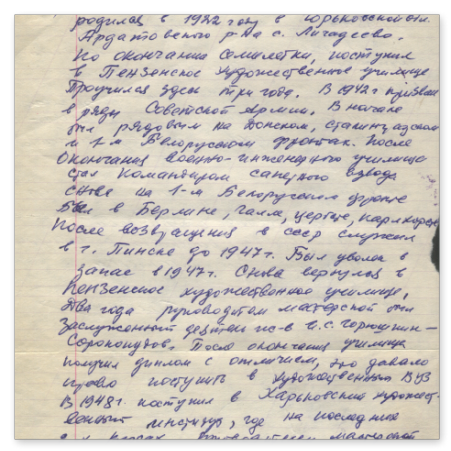 родился в 1922 году в Горьковской обл.
Ардатовского р-на с. Личадеево.
По окончании семилетки, поступил
в Пензенское художественное училище
Проучился здесь три года. В 1942 г призван
в ряды Советской Армии. В начале
был рядовым на Донском, сталинградском
и 1-м Белорусском фронтах. После
Окончания военно-инженерного училища
стал Командиром саперного взвода
на 1-м Белорусском фронте
Был в Берлине, Галле, Цербсте,
После возвращения в СССР служил
в г. Пинске до 1947 г. Был уволен в
запас в 1947 г. Снова вернулся в
Пензенское художественное училище,
Два года руководителем мастерской был
Заслуженный деятель ис-в И.С. Горюшкин-
Сорокопудов. После окончания училища
получил диплом с отличием, это давало
право поступить в художественный ВУЗ
В 1948 г. поступил в Харьковский художест-
венный институт, где на последних
курсах мастерской